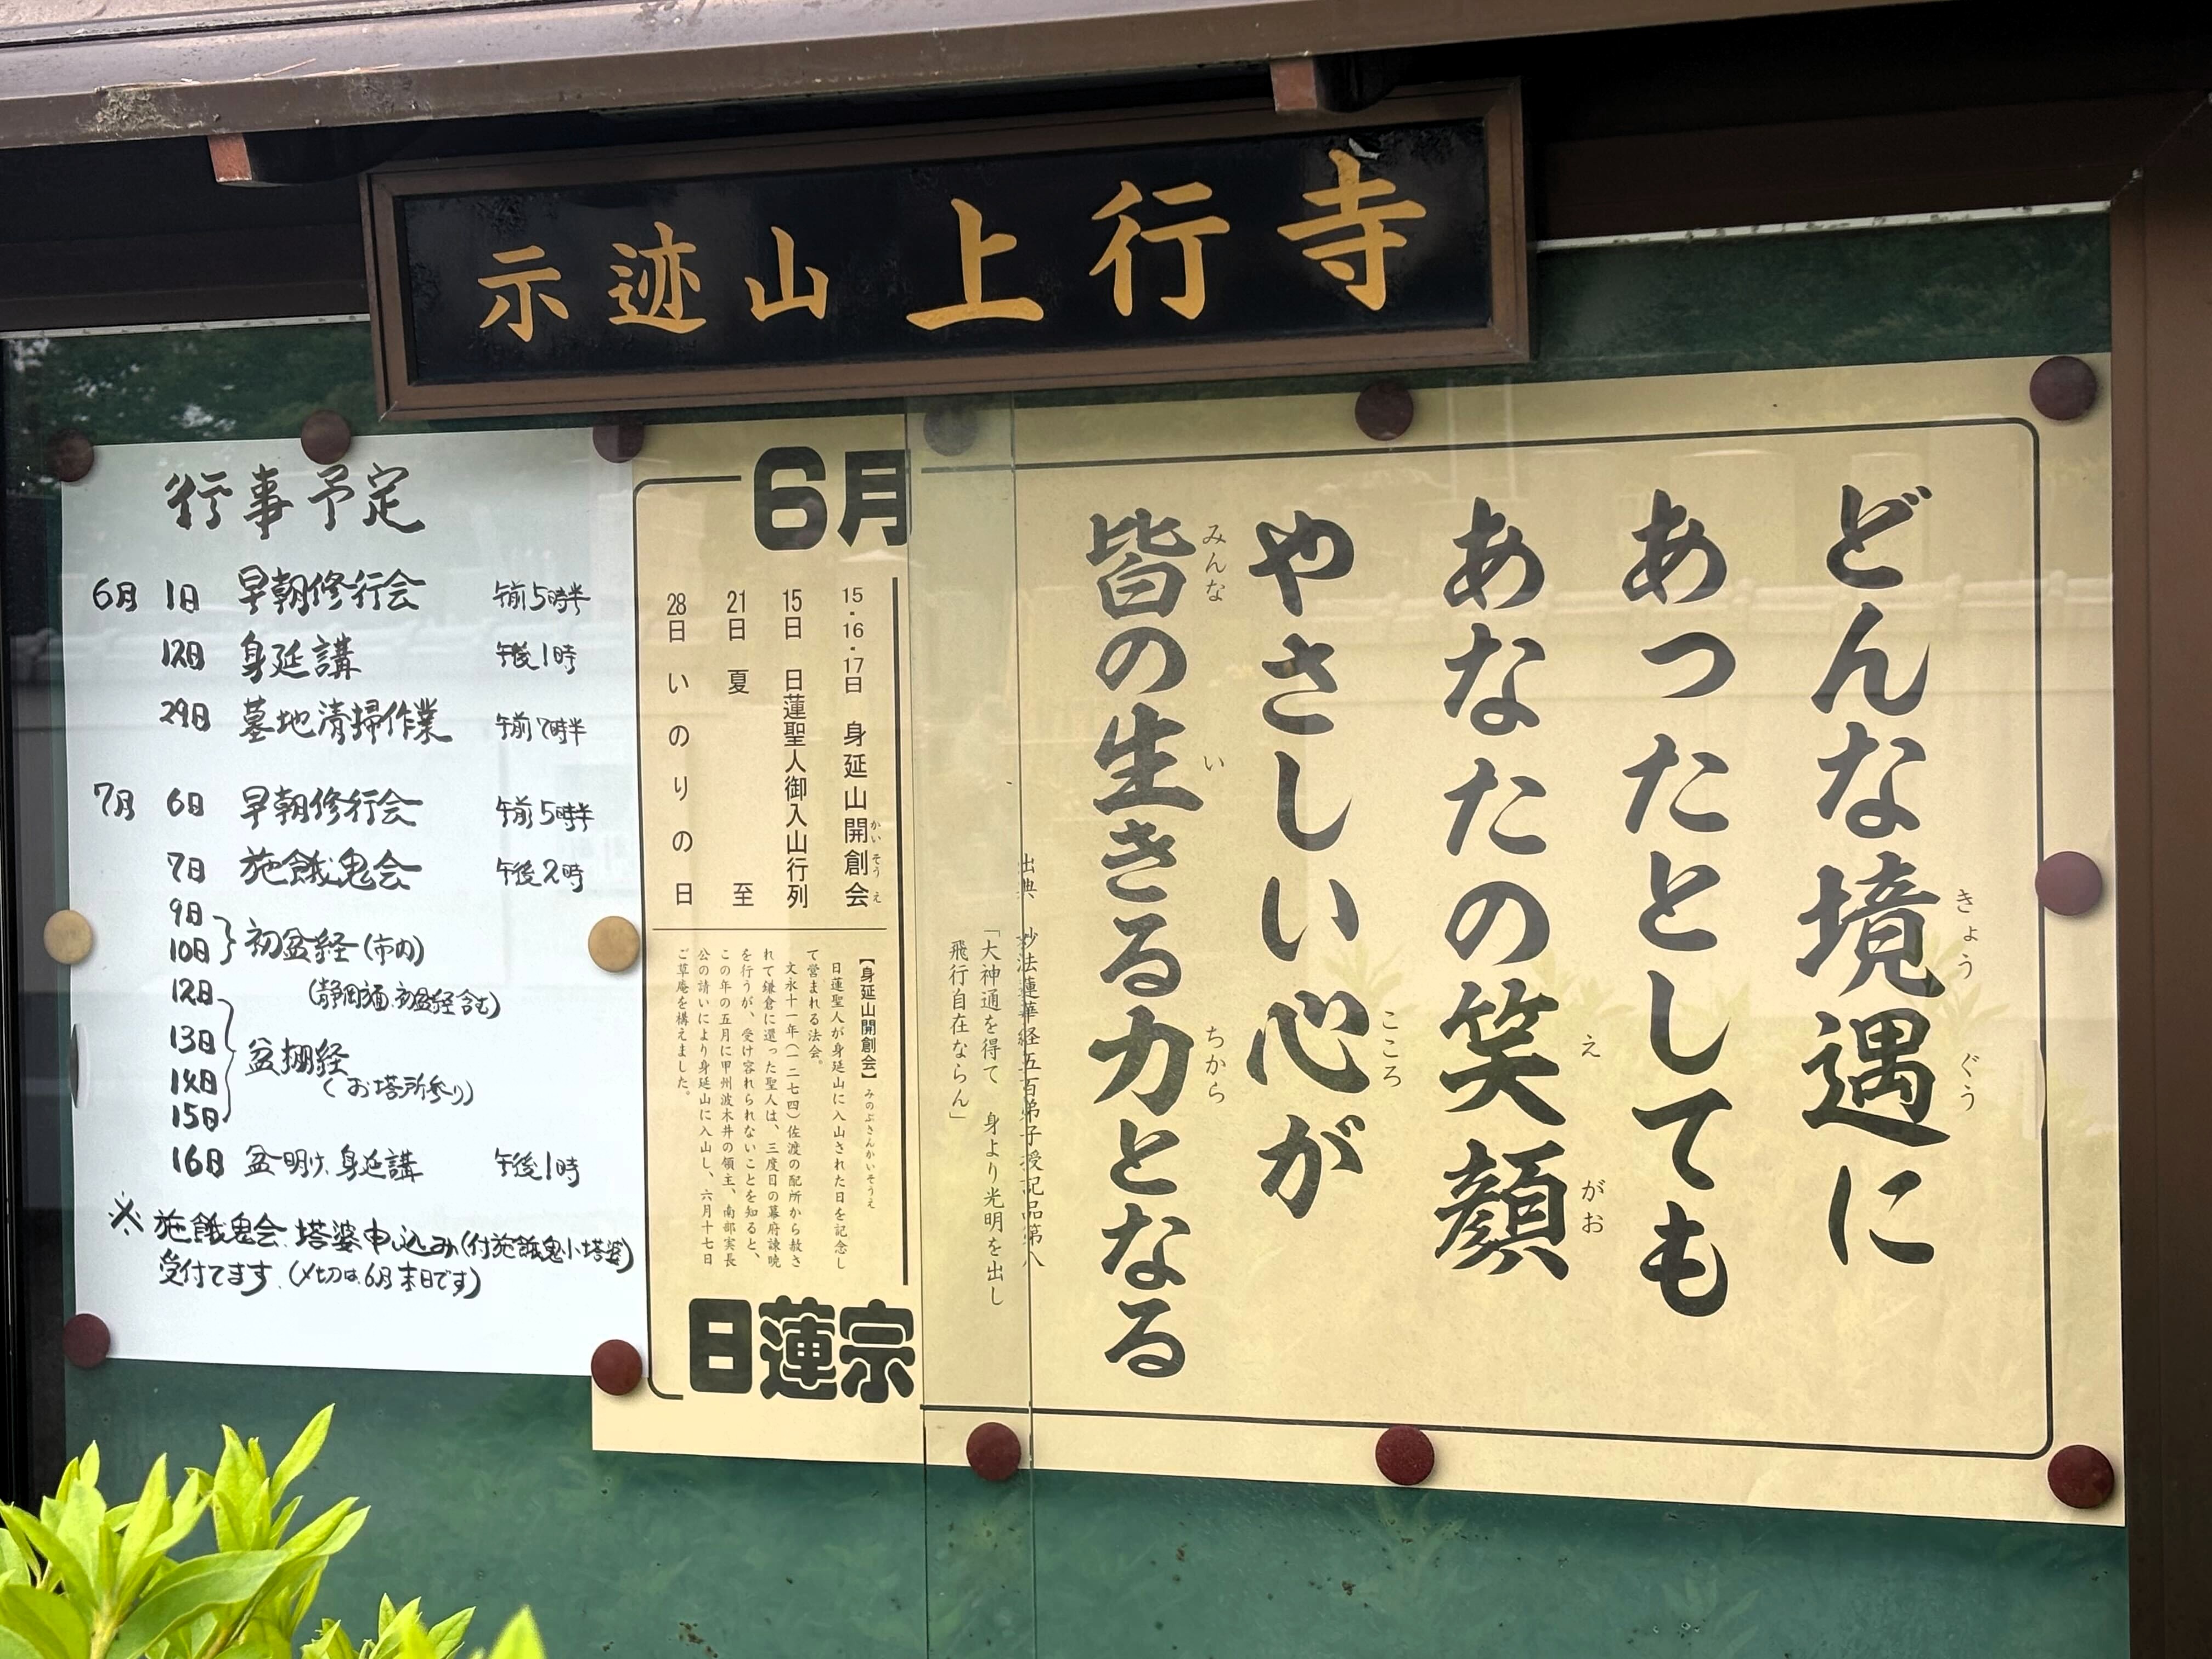 示迹山 上行寺
どんな境遇に
きょうぐう
あったとしても
あなたの笑顔
えがお
やさしい心が
こころ
皆の生きる力となる
みんな い ちから
出典 妙法蓮華経五百弟子授記品第八
「大神通を得て 身より光明を出し
飛行自在ならん」
6月
15・16・17日 身延山開創会
かいそうえ
15日 日蓮聖人御入山行列
21日 夏至
28日 いのりの日
【身延山開創会】 みのぶさんかいそうえ
日蓮聖人が身延山に入山された日を記念し
て営まれる法会。
文永十一年(一二七四)佐渡の配所から赦さ
れて鎌倉に還った聖人は、三度目の幕府諫暁
を行うが、受け容れられないことを知ると、
この年の五月に甲州波木井の領主、南部実長
公の請いにより身延山に入山し、六月十七日
ご草庵を構えました。
日蓮宗
行事予定
6月 1日 早朝修行会 午前5時半
12日 身延講 午後1時
29日 墓地清掃作業 午前7時半
7月 6日 早朝修行会 午前5時半
7日 施餓鬼会 午後2時
9日
10日 初盆経(市内)
12日 (静岡 初盆経含む)
13日
14日 盆棚経
(お塔所参り)
15日
16日 盆明け、身延講 午後1時
※施餓鬼会、塔婆申込み(付施餓鬼小塔婆)
受付てます。(〆切は、6月末日です)